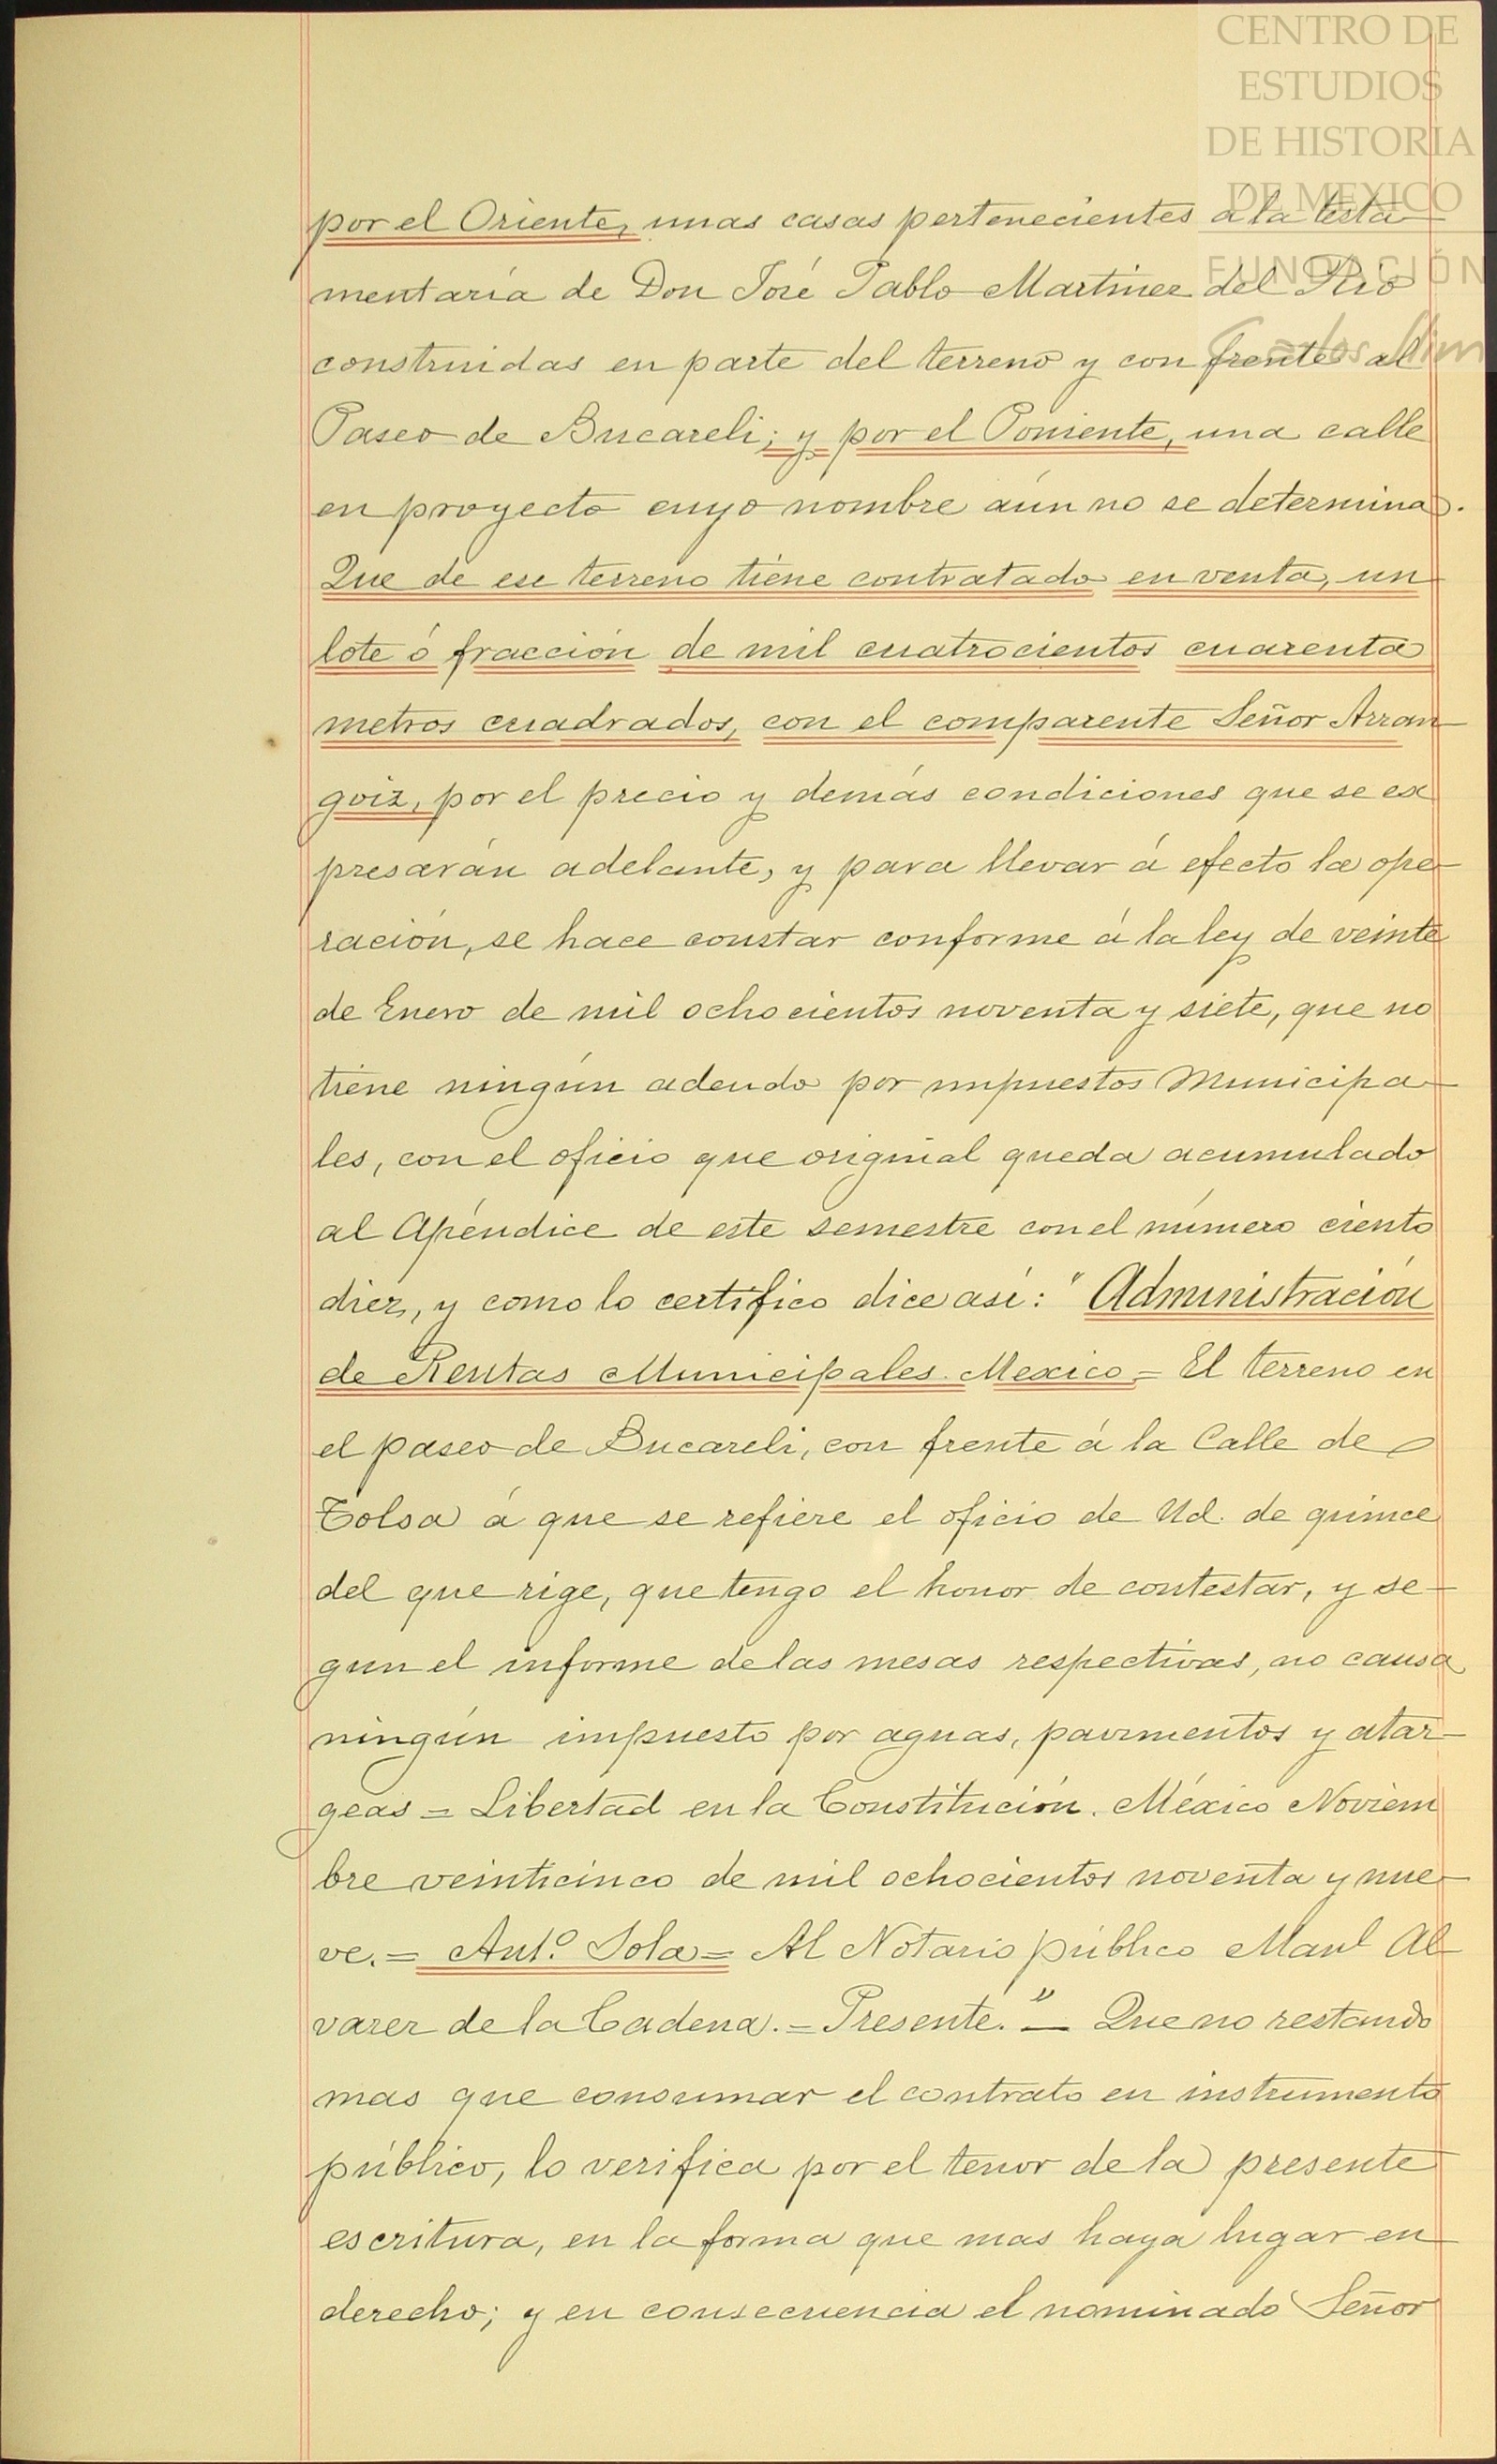 CENTRO DE
ESTUDIOS
DE HISTORIA
DE MEXICO
FUNDACIÓN
Carlos Slim
por el Oriente, unas casas pertenecientes á la testa-
mentaría de Don José Pablo Martinez del Rio
construidas en parte del terreno y con frente al
Paseo de Bucareli; y por el Poniente, una calle
en proyecto cuyo nombre aún no se determina.
Que de ese terreno tiene contratado en venta, un
lote ó fracción de mil cuatrocientos cuarenta
metros cuadrados, con el comparente Señor Arran-
goiz, por el precio y demás condiciones que se ex
presarán adelante, y para llevar á efecto la ope-
ración, se hace constar conforme á la ley de veinte
de Enero de mil ochocientos noventa y siete, que no
tiene ningún adeudo por impuestos Municipa-
les, con el oficio que original queda acumulado
al Apéndice de este semestre con el número ciento
diez, y como lo certifico dice así: "Administración
de Rentas Municipales. Mexico = El terreno en
el paseo de Bucareli, con frente á la Calle de
Tolsa á que se refiere el oficio de Ud. de quince
del que rige, que tengo el honor de contestar, y se-
gun el informe de las mesas respectivas, no causa
ningún impuesto por aguas, pavimentos y atar-
geas = Libertad en la Constitución. México Noviem
bre veinticinco de mil ochocientos noventa y nue-
ve. = Antº Sola = Al Notario público Manl Al-
varez de la Cadena. = Presente." — Que no restando
mas que consumar el contrato en instrumento
público, lo verifica por el tenor de la presente
escritura, en la forma que mas haya lugar en
derecho; y en consecuencia el nominado Señor